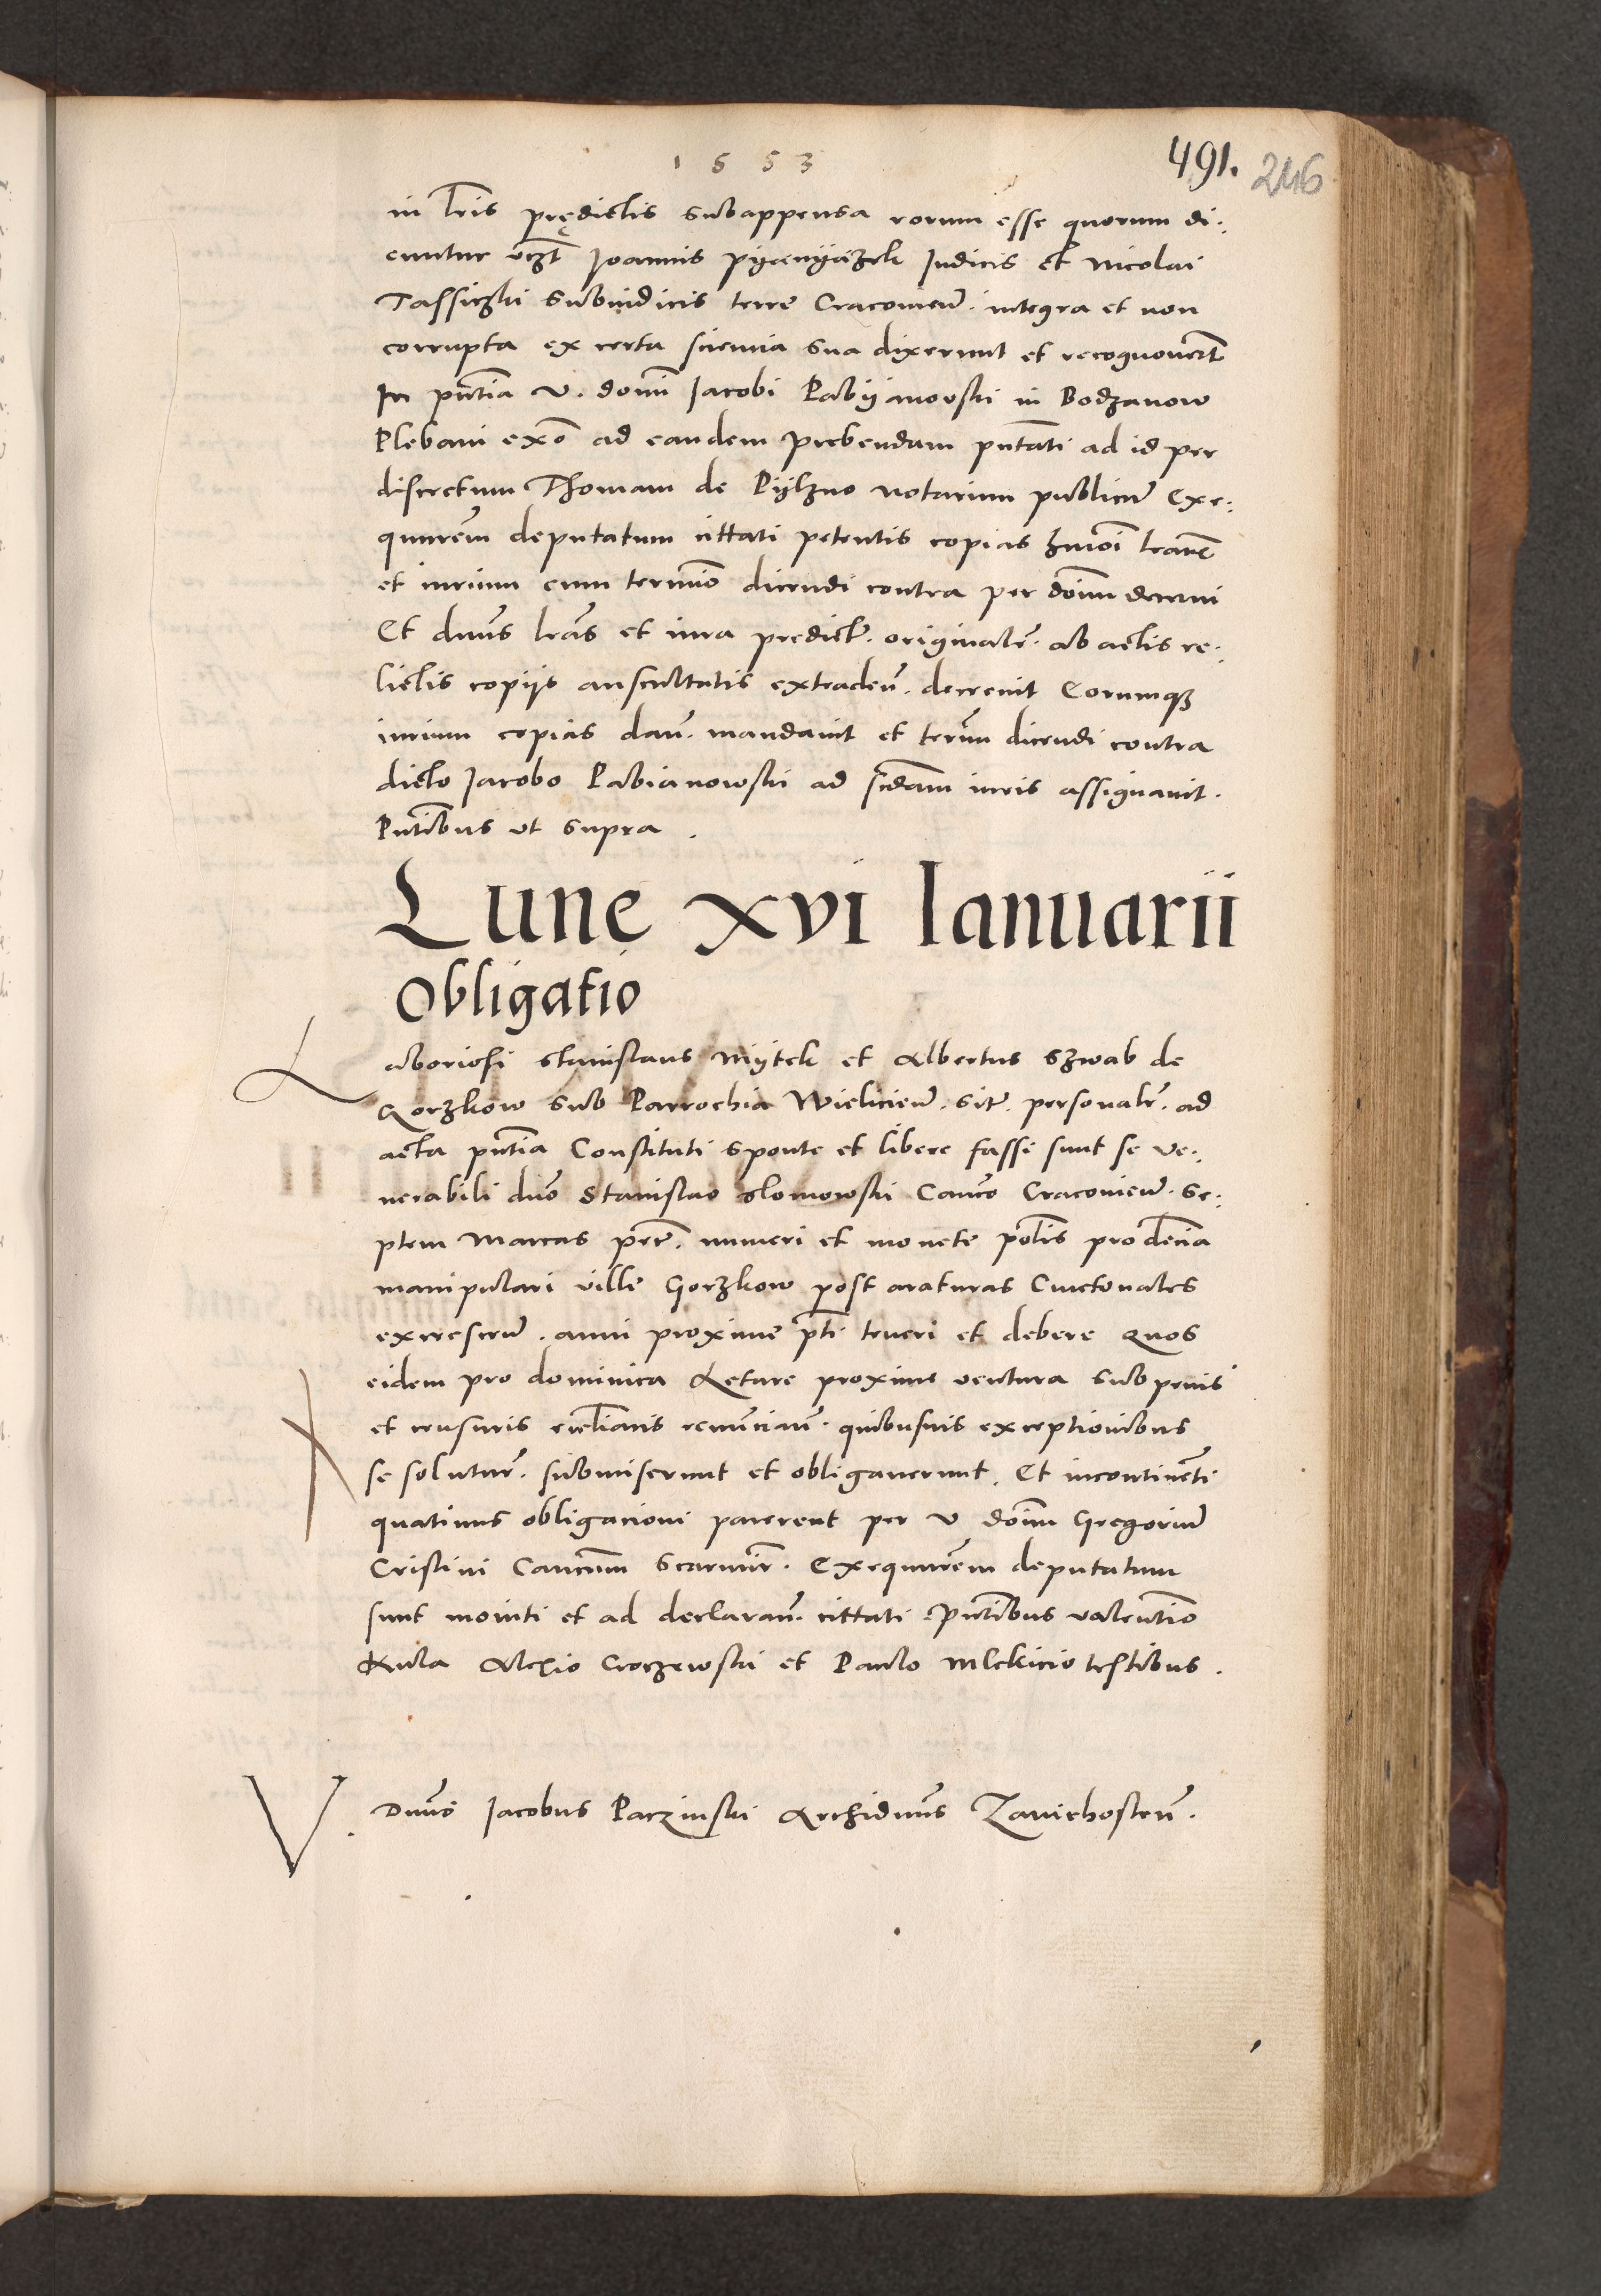 1553
491. 246
in lris prędictis subappensa eorum esse quorum di:
cuntur vczt Joannis pyenyązek Judicis et Nicolai
Tassiczki Subiudicis terre Cracovien. integra et non
corrupta ex certa sciencia sua dixerunt et recognoverunt
In pntia V. domi Jacobi Pabyanowski in Bodzanow
Plebani exõ ad eandem prebendam pntati ad id per
discretum Thomam de Pylzno notarium publicum Exe:
quutrem deputatum cittati petentis copias hmoi lrarum
et iurium cum termio dicendi contra per dominum decerni
Et dnus lras et iura predict. original. ab actis re:
lictis copijs auscultatis extraden. decrevit Eorumq3
iurium copias dan. mandavit et termin dicendi contra
dicto Jacobo Pabianowski ad scdam iuris assignavit.
Pntibus ut supra.
Lunę xvi Ianuarii
Obligatio
Laboriosi Stanislaus Mytek et Albertus Szwab de
Gorzkow sub Parrochia Wielicien. sit. personalr. ad
acta pntia Constituti sponte et libere fassi sunt se ve:
nerabili dno Stanislao Slomowski Canco Cracovien. Se:
ptem Marcas pecr. numeri et monete polis pro decia
manipulari ville Gorzkow post araturas Cmetonales
excrescen. anni proxime pti teneri et debere Quos
eidem pro dominica Letare proxime ventura sub penis
et censuris eccliacis renuncian. quibusvis exceptionibus
se solutur. submiserunt et obligaverunt. Et incontinenti
quatinus obligacioni parerent per V dominum Gregorium
Cristini Canonicum Scarmir. Exequutrem deputatum
sunt moniti et ad declaran. cittati Pntibus valentino
Kula Alexio Croczewski et Paulo Mlekicio testibus.
V. Dnus Jacobus Paczinski Archidnus Zavichosten.